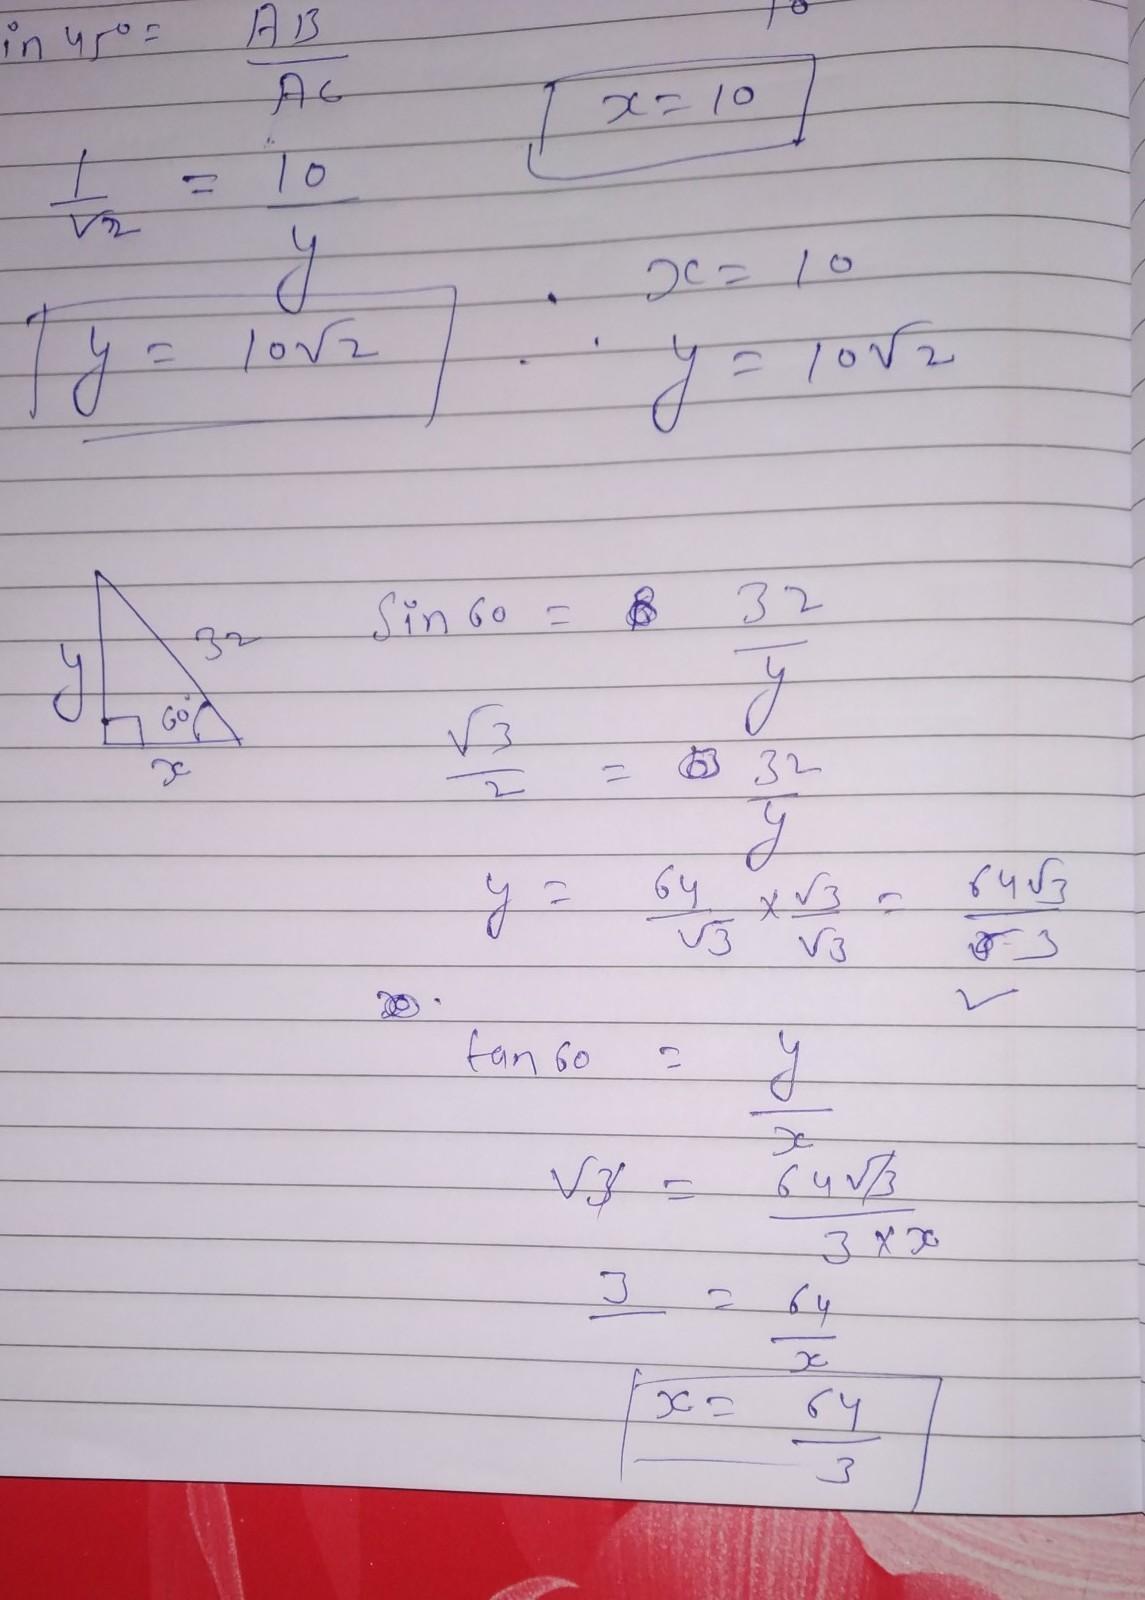 in 45° = AB/AC
x = 10
1/√2 = 10/y
x = 10
y = 10√2
y = 10√2
y 32 60° x
Sin 60 = 32/y
√3/2 = 32/y
y = 64/√3 × √3/√3 = 64√3/3
tan 60 = y/x
√3 = 64√3/3×x
3 = 64/x
x = 64/3